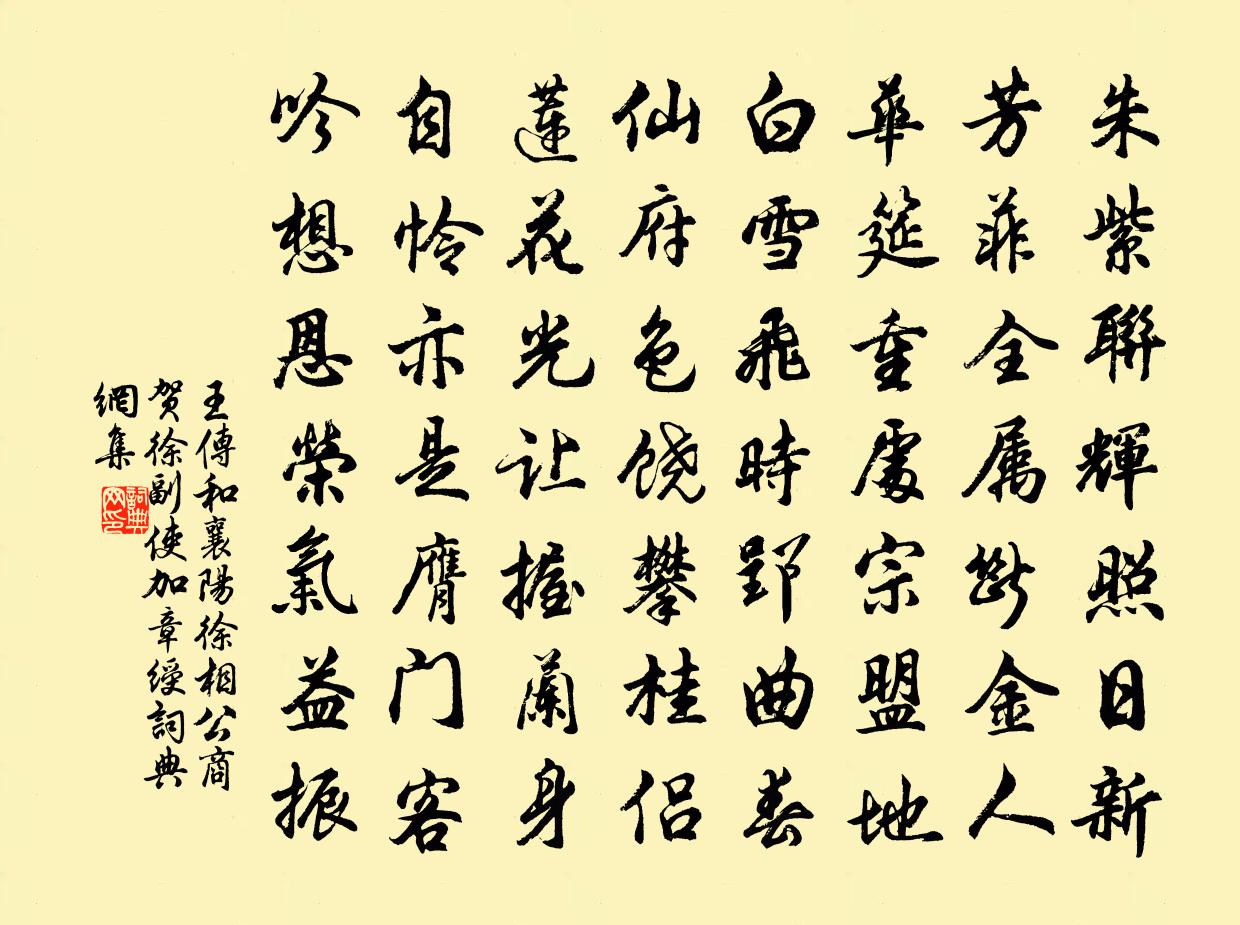 朱紫聯輝照日新
芳菲全属斷金人
華筵重處宗盟地
白雪飛時郢曲春
仙府色饶攀桂侣
蓮花光让握蘭身
自怜亦是膺门客
吟想恩榮氣益振
王傅和襄陽徐相公商
贺徐副使加章綬詞典
網集